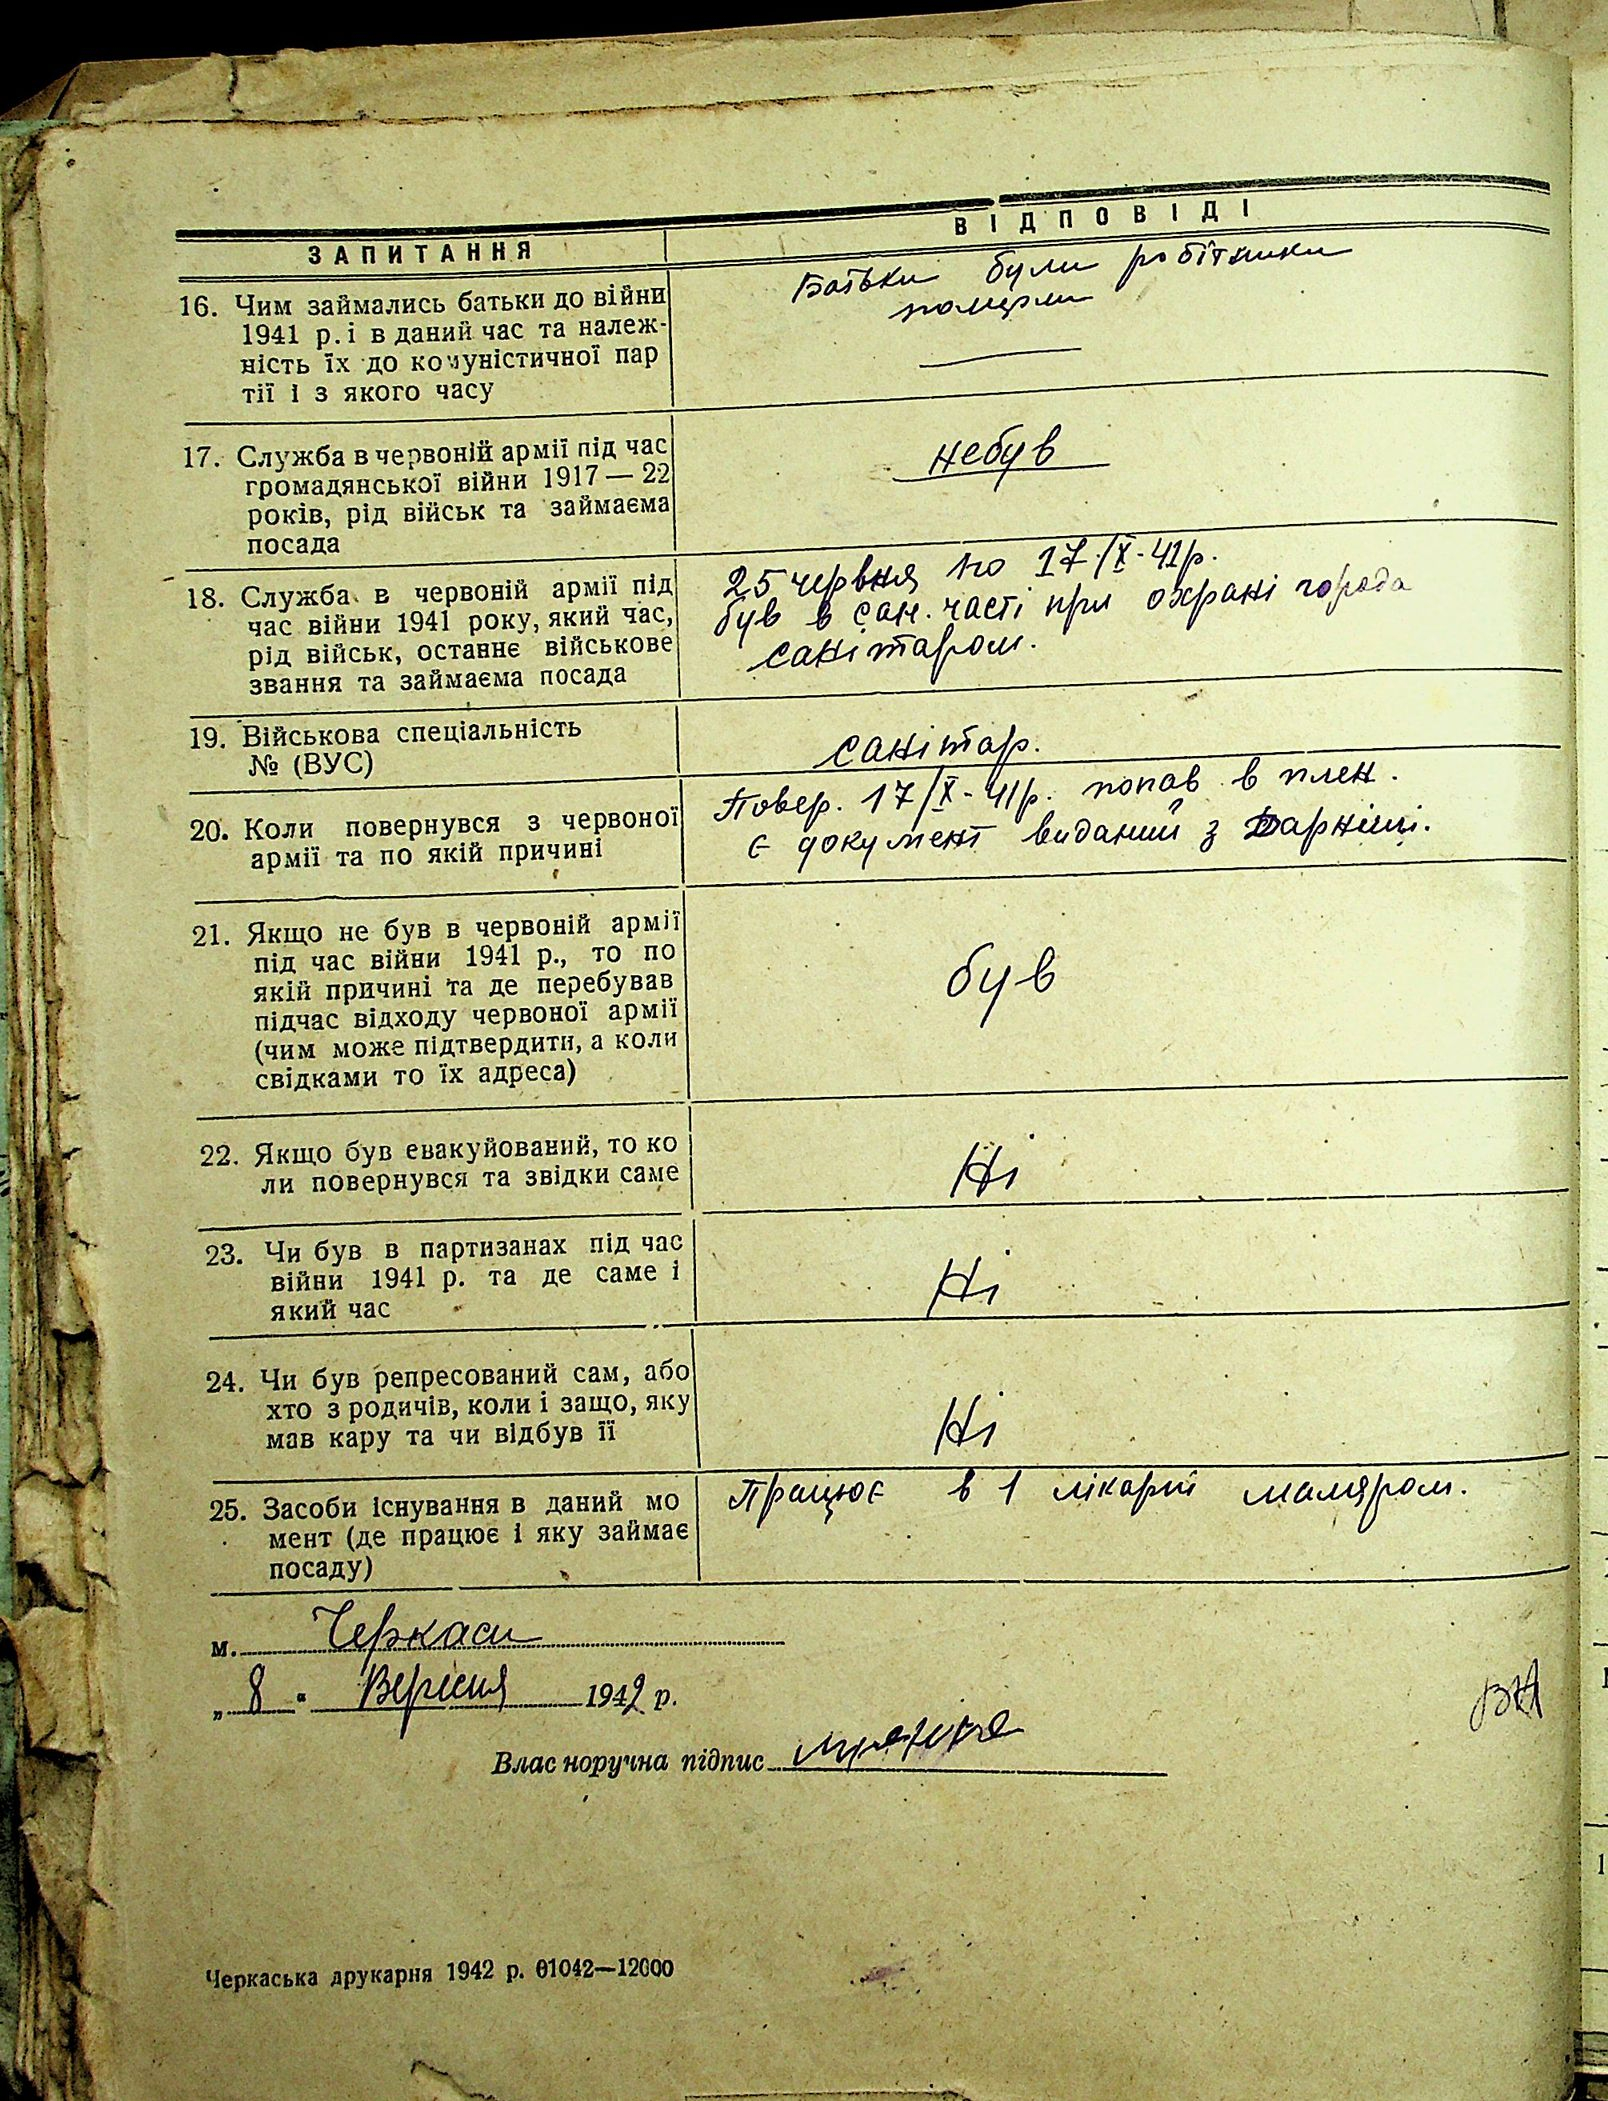 ЗАПИТАННЯ
ВІДПОВІДІ
16. Чим займались батьки до війни
1941 р. і в даний час та належ-
ність їх до комуністичної пар
тії і з якого часу
Батьки були робітники
померли
17. Служба в червоній армії під час
громадянської війни 1917 — 22
років, рід військ та займаєма
посада
небув
18. Служба в червоній армії під
час війни 1941 року, який час,
рід військ, останнє військове
звання та займаєма посада
25 червня по 17/X-41р.
був в сан. часті при охрані города
санітаром.
19. Військова спеціальність
№ (ВУС)
санітар.
20. Коли повернувся з червоної
армії та по якій причині
Повер. 17/X-41р. попав в плен.
є документ виданий з Дарниці.
21. Якщо не був в червоній армії
під час війни 1941 р., то по
якій причині та де перебував
підчас відходу червоної армії
(чим може підтвердити, а коли
свідками то їх адреса)
був
22. Якщо був евакуйований, то ко
ли повернувся та звідки саме
Ні
23. Чи був в партизанах під час
війни 1941 р. та де саме і
який час
Ні
24. Чи був репресований сам, або
хто з родичів, коли і защо, яку
мав кару та чи відбув її
Ні
25. Засоби існування в даний мо
мент (де працює і яку займає
посаду)
Працює в 1 лікарні маляром.
м. Черкаси
„ 8 " Вересня 1942 р.
Власноручна підпис
Черкаська друкарня 1942 р. 01042—12000